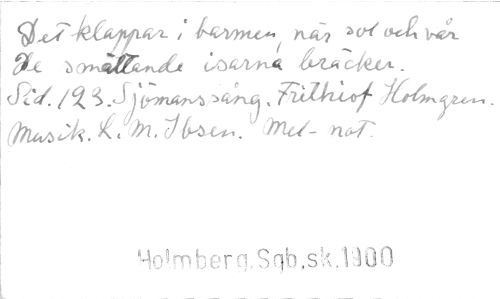 Det klappar i barmen, när sol och vår
De smältande isarna bräcker.
Sid. 123. Sjömanssång. Frithiof Holmgren.
Musik. L. M. Ibsen. Mel- not.
Holmberg.Sgb.sk.1900